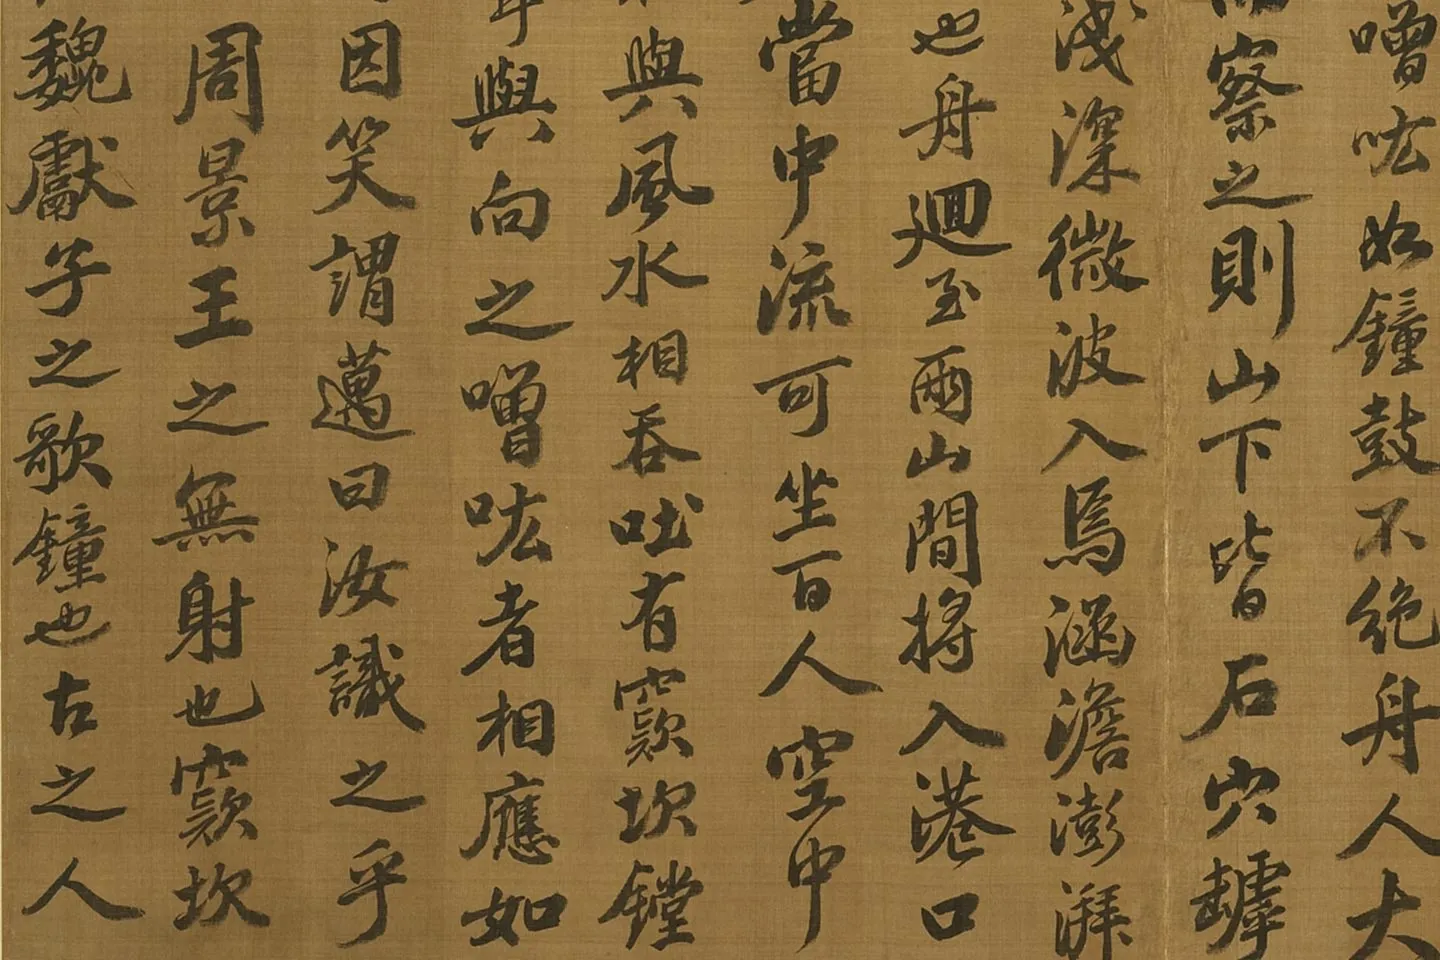 噌吰如鐘鼓不絶舟人大
察之則山下皆石穴罅
淺深微波入焉涵澹澎湃
也舟迴至兩山間將入港口
當中流可坐百人空中
與風水相吞吐有窾坎鏜
與向之噌吰者相應如
因笑謂邁曰汝識之乎
周景王之無射也窾坎
魏獻子之歌鐘也古之人